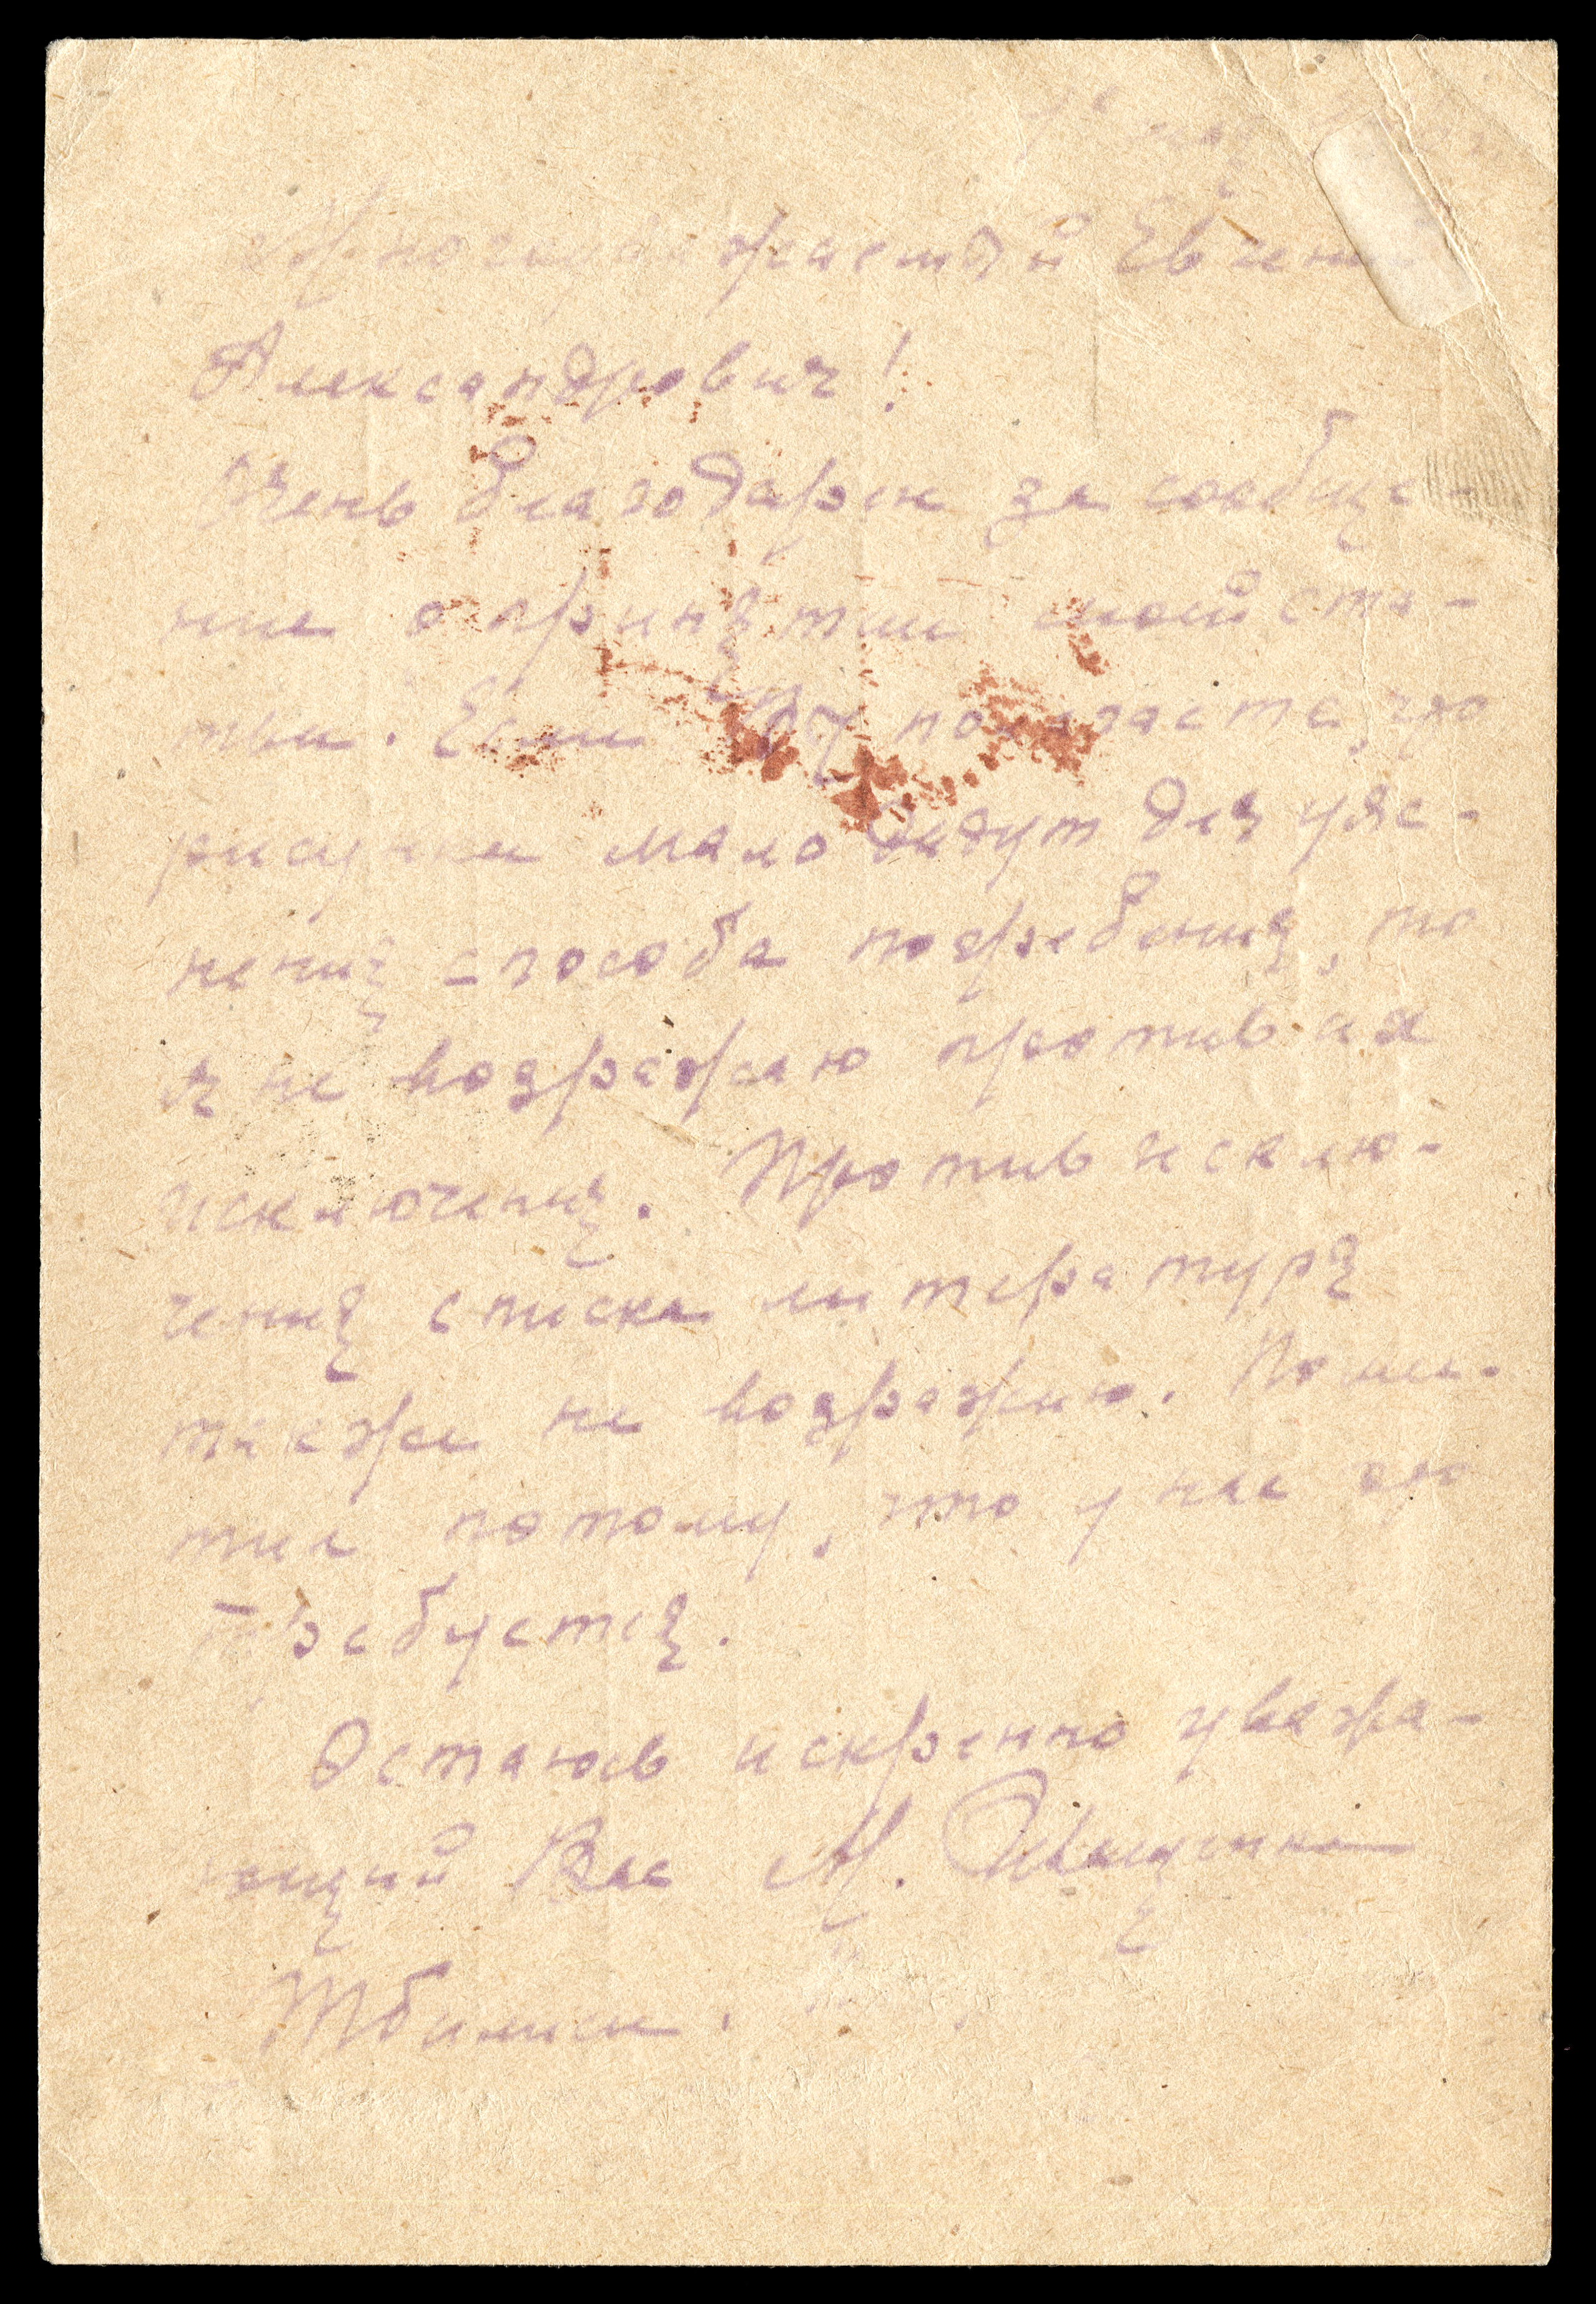 Многоуважаемый Евгений
Александрович!
Очень благодарен за сообще-
ние о принятии моей ста-
тьи. Если Вы полагаете, что
рисунки мало дадут для уяс-
нения способа погребения, то
я не возражаю против их
исключения. Против исклю-
чения списка литературы
также не возражаю. Поме-
тил потому, что у нас это
требуется.
Остаюсь искренно уважа-
ющий Вас М. Иващенко
Тбилиси.